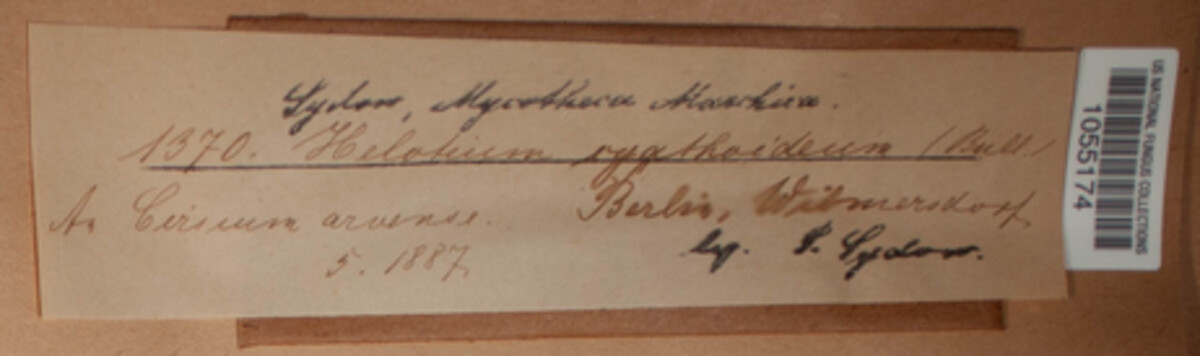 Sydow, Mycotheca Marchica.
1370. Helotium cyathoideum (Bull.)
An Cirsium arvense. Berlin, Wilmersdorf
5. 1887 lg. P. Sydow.
US NATIONAL FUNGUS COLLECTIONS
1055174